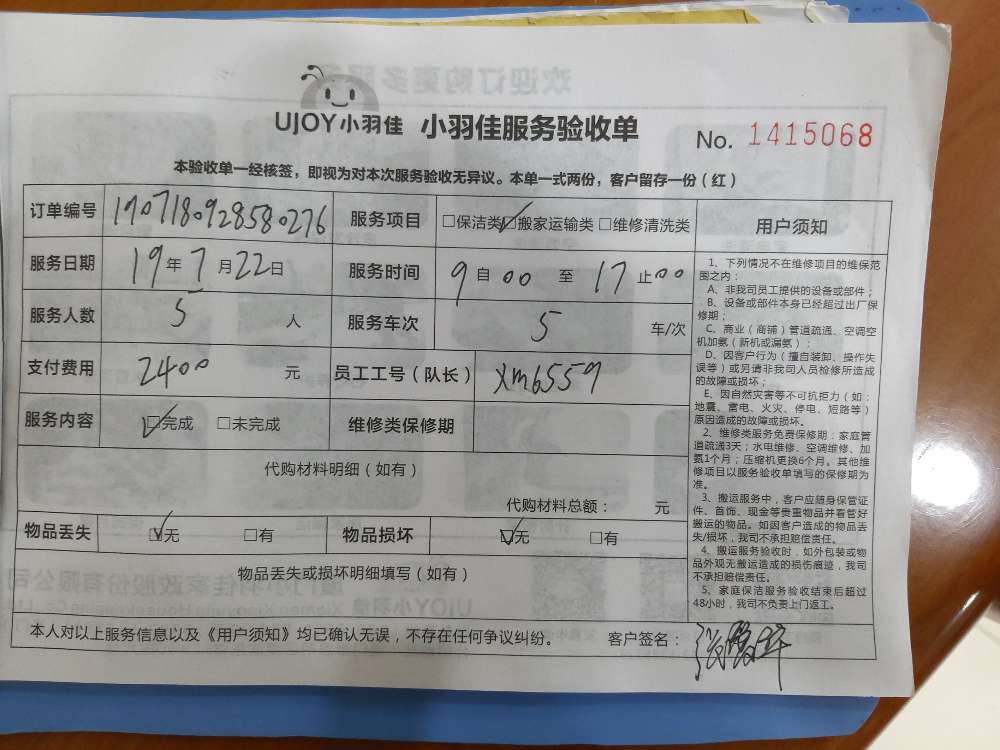 UJOY小羽佳 小羽佳服务验收单 No. 1415068
本验收单一经核签，即视为对本次服务验收无异议。本单一式两份，客户留存一份（红）
订单编号 1907180928580276 服务项目 □保洁类 ☑搬家运输类 □维修清洗类
服务日期 19年7月22日 服务时间 9自00至17止00
服务人数 5人 服务车次 5车/次
支付费用 2400元 员工工号（队长） xm6559
服务内容 ☑完成 □未完成 维修类保修期
代购材料明细（如有）
代购材料总额： 元
物品丢失 ☑无 □有 物品损坏 ☑无 □有
物品丢失或损坏明细填写（如有）
本人对以上服务信息以及《用户须知》均已确认无误，不存在任何争议纠纷。 客户签名：
用户须知
1、下列情况不在维修项目的维保范
围之内：
A、非我司员工提供的设备或部件；
B、设备或部件本身已经超过出厂保
修期；
C、商业（商铺）管道疏通、空调空
机加氨（新机或漏氨）；
D、因客户行为（擅自装卸、操作失
误等）或另请非我司人员检修所造成
的故障或损坏；
E、因自然灾害等不可抗拒力（如：
地震、雷电、火灾、停电、短路等）
原因造成的故障或损坏。
2、维修类服务免费保修期：家庭管
道疏通3天；水电维修、空调维修、加
氨1个月；压缩机更换6个月。其他维
修项目以服务验收单填写的保修期为
准。
3、搬运服务中，客户应随身保管证
件、首饰、现金等贵重物品并看管好
搬运的物品。如因客户造成的物品丢
失/损坏，我司不承担赔偿责任。
4、搬运服务验收时，如外包装或物
品外观无搬运造成的损伤痕迹，我司
不承担赔偿责任。
5、家庭保洁服务验收结束后超过
48小时，我司不负责上门返工。